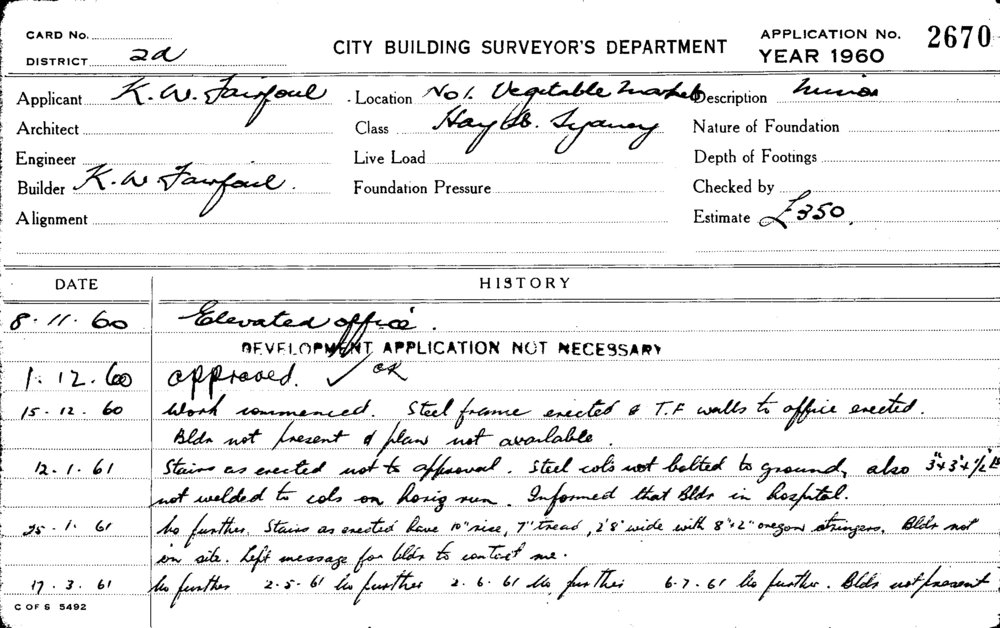 CARD No.
DISTRICT 2d
CITY BUILDING SURVEYOR'S DEPARTMENT
APPLICATION No. 2670
YEAR 1960
Applicant K. W. Fairfoul
Location No 1. Vegetable Markets
Description Minor
Architect
Class Hay St. Sydney
Nature of Foundation
Engineer
Live Load
Depth of Footings
Builder K. W Fairfoul.
Foundation Pressure
Checked by
Alignment
Estimate £350.
DATE HISTORY
8.11.60 Elevated office.
DEVELOPMENT APPLICATION NOT NECESSARY
1.12.60 approved. ✓ OK
15.12.60 Work commenced. Steel frame erected & T.F walls to office erected.
Bldr not present & plan not available.
12.1.61 Stairs as erected not to approval. Steel cols not bolted to ground, also 3"x3"x1/2"
not welded to cols on horiz run. Informed that Bldr in hospital.
25.1.61 No further. Stairs as erected have 10" rise, 7" tread, 2'8" wide with 8"x2" oregon stringers. Bldr not
on site. Left message for bldr to contact me.
17.3.61 No further 2-5-61 No further 2.6.61 No further 6-7.61 No further. Bldr not present
C OF S 5492